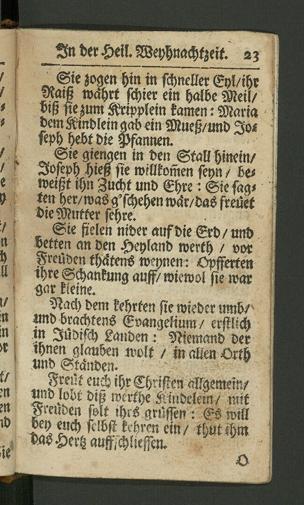 In der Heil. Weyhnachtzeit. 23
Sie zogen hin in schneller Eyl/ ihr
Raiß währt schier ein halbe Meil/
biß sie zum Kripplein kamen: Maria
dem Kindlein gab ein Mueß/ und Jo-
seph hebt die Pfannen.
Sie giengen in den Stall hinein/
Joseph hieß sie willkom̃en seyn/ be-
weißt ihn Zucht und Ehre: Sie sag-
ten her/ was g'schehen wär/ das freüet
die Mutter sehre.
Sie fielen nider auf die Erd/ und
betten an den Heyland werth/ vor
Freüden thätens weynen: Opfferten
ihre Schankung auff/ wiewol sie war
gar kleine.
Nach dem kehrten sie wieder umb/
und brachtens Evangelium/ erstlich
in Jüdisch Landen: Niemand der
ihnen glauben wolt/ in allen Orth
und Ständen.
Freüt euch ihr Christen allgemein/
und lobt diß werthe Kindelein/ mit
Freüden solt ihrs grüssen: Es will
bey euch selbst kehren ein/ thut ihm
das Hertz auffschliessen.